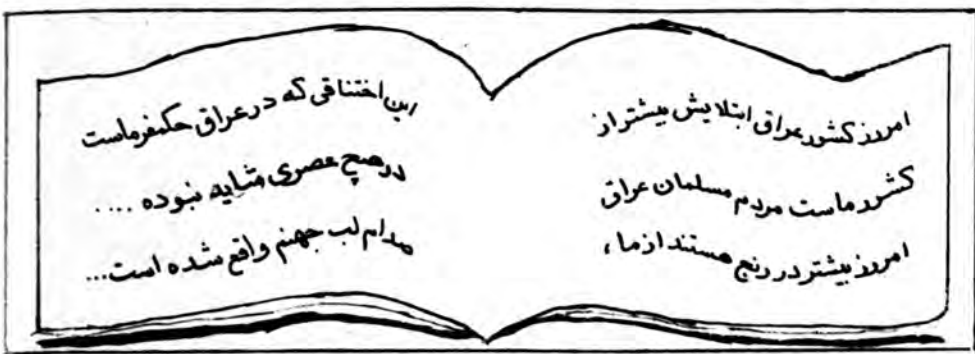 امروز کشور عراق ابتلایش بیشتر از
کشور ماست مردم مسلمان عراق
امروز بیشتر در رنج هستند از ما،
این اختناقی که در عراق حکمفرماست
در هیچ عصری شاید نبوده ....
صدام لب جهنم واقع شده است...